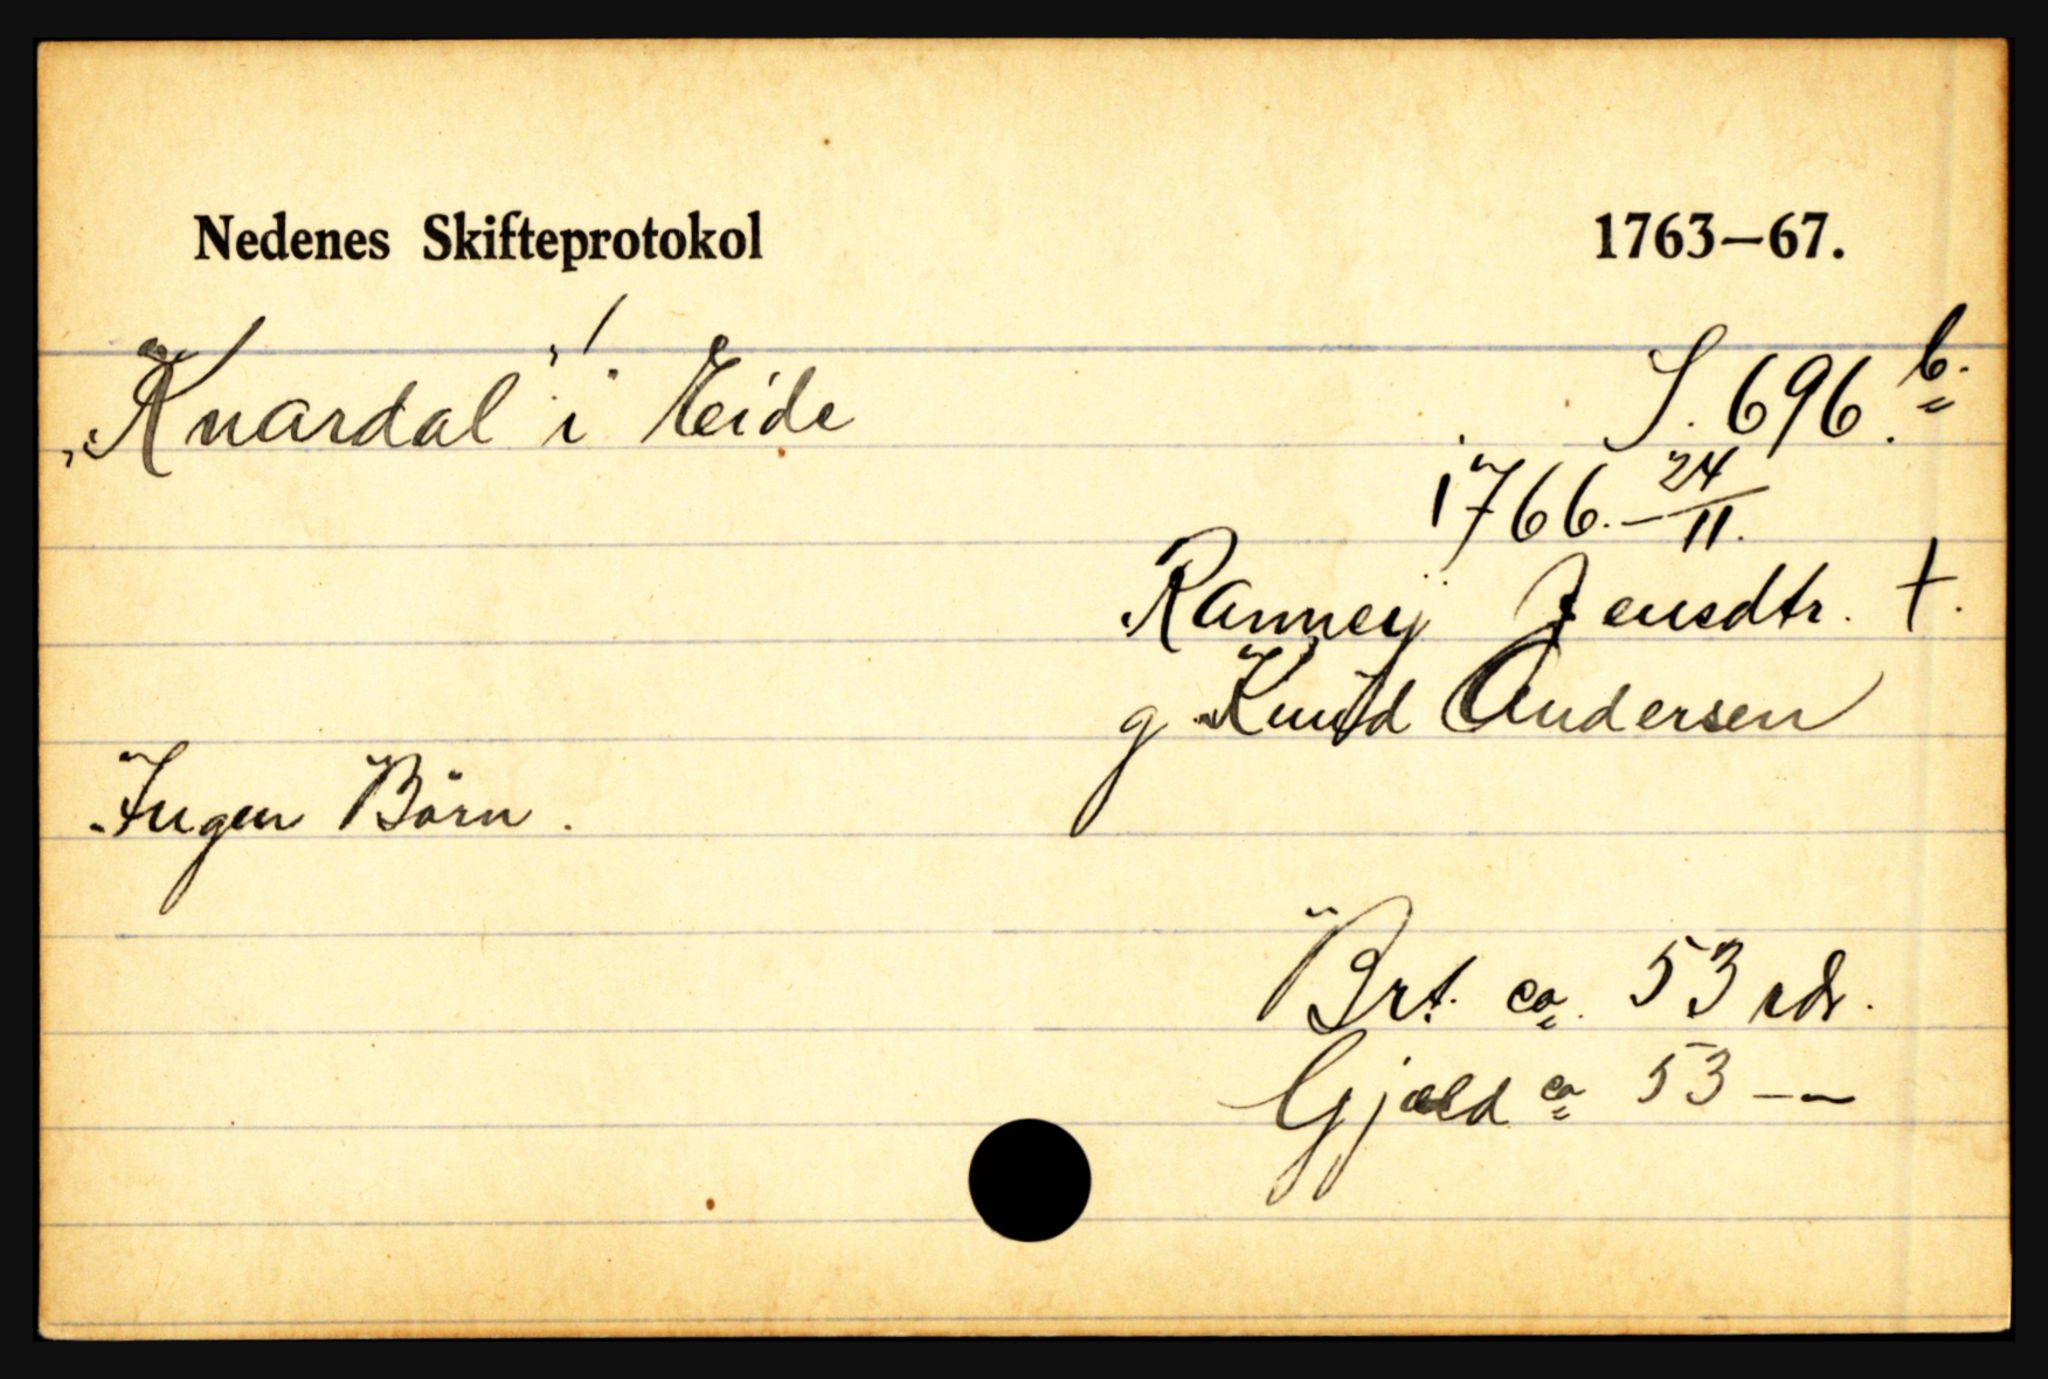 Nedenes Skifteprotokol 1763–67.
„Knardal" i Eide S. 696.b.
1766. – 24/11.
Ranney Jensdtr. †.
g Knud Andersen
Ingen Börn.
Brt. ca. 53 rdr.
Gjæld ca 53 — —